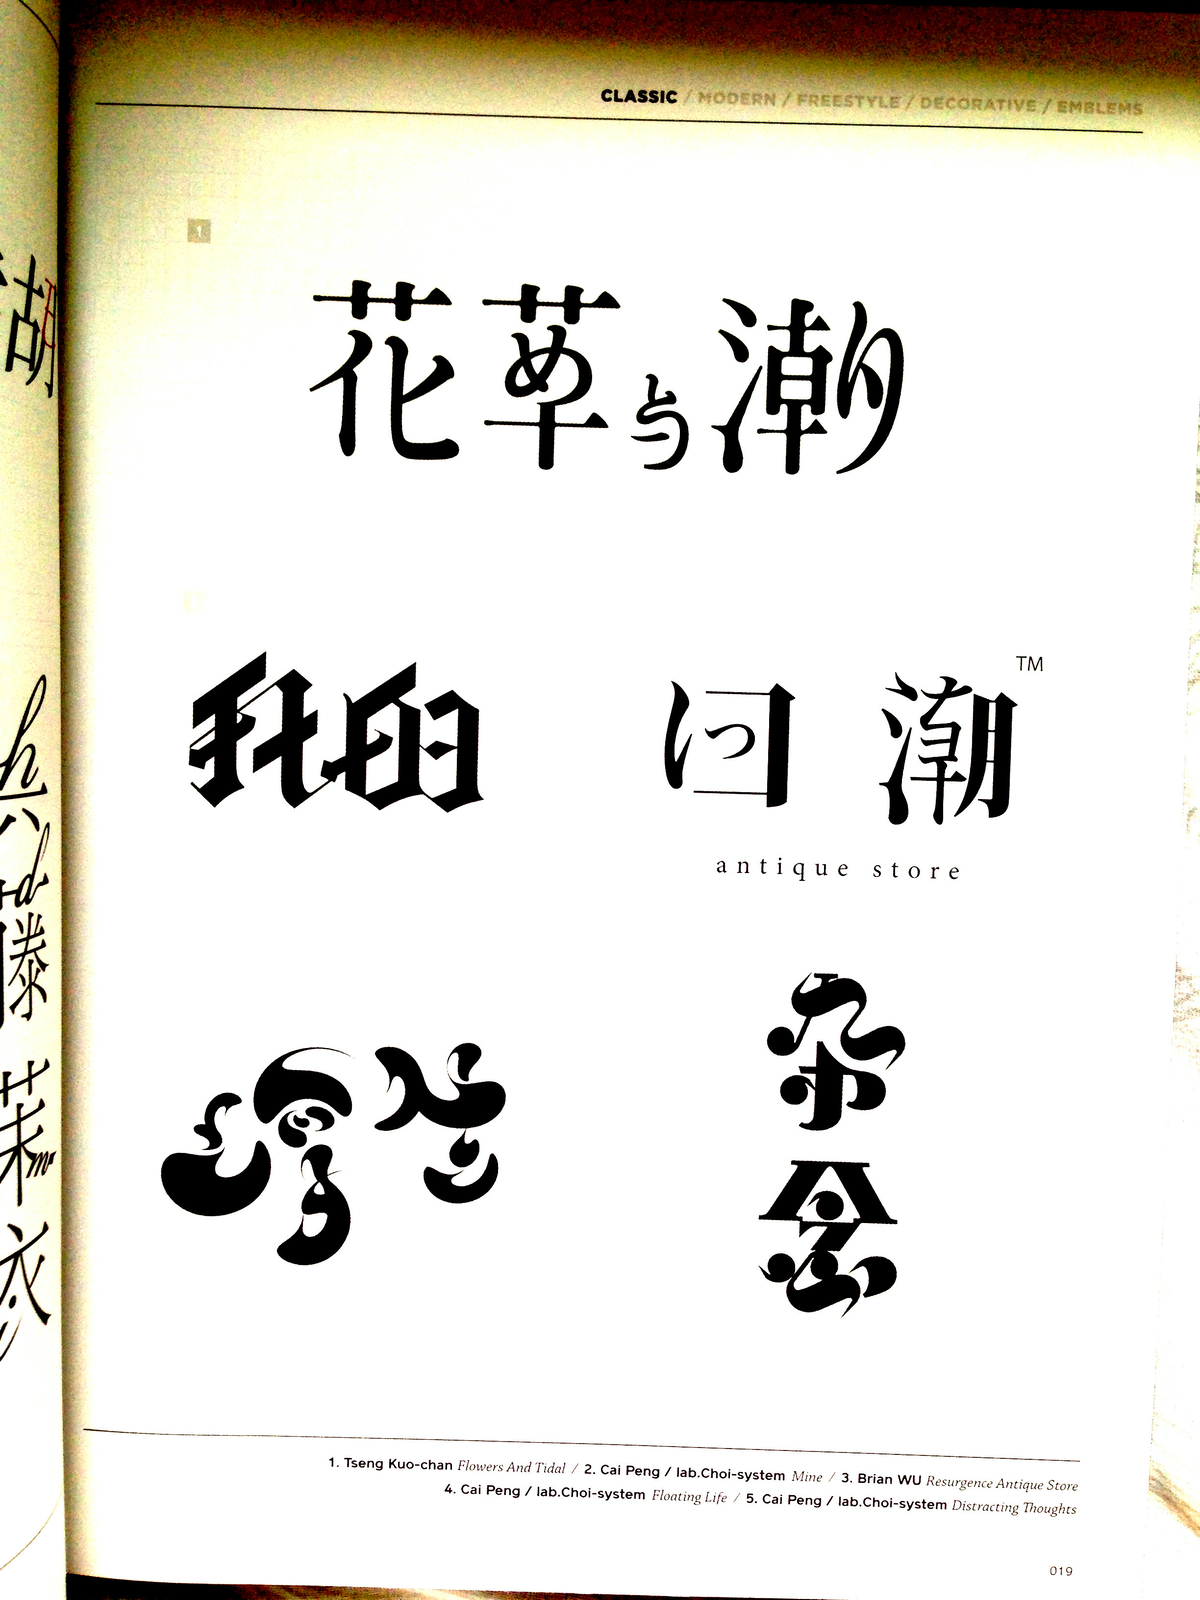 CLASSIC / MODERN / FREESTYLE / DECORATIVE / EMBLEMS
1
花草与潮
我的
回潮
TM
antique store
浮生
杂念
1. Tseng Kuo-chan Flowers And Tidal / 2. Cai Peng / lab.Choi-system Mine / 3. Brian WU Resurgence Antique Store
4. Cai Peng / lab.Choi-system Floating Life / 5. Cai Peng / lab.Choi-system Distracting Thoughts
019
胡
h
d
藤
茉
m
衣